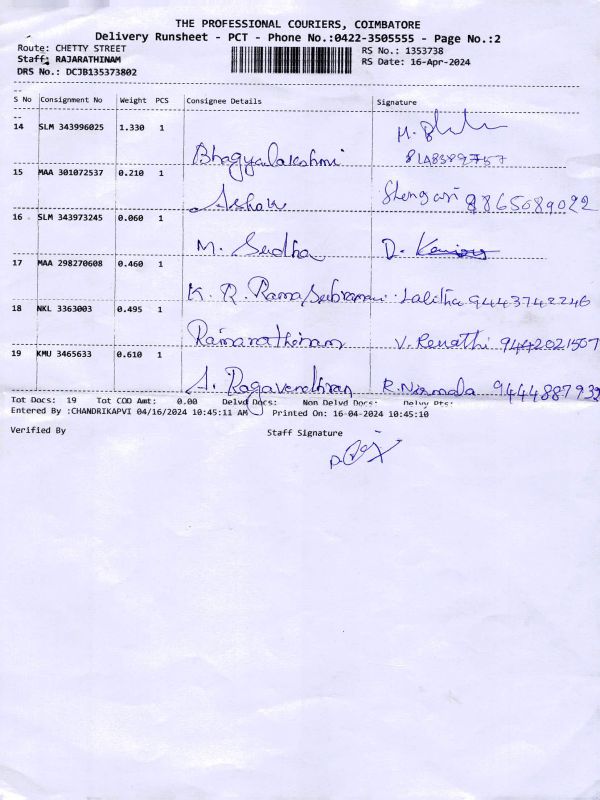 THE PROFESSIONAL COURIERS, COIMBATORE
Delivery Runsheet - PCT - Phone No.:0422-3505555 - Page No.:2
Route: CHETTY STREET
RS No.: 1353738
Staff: RAJARATHINAM
RS Date: 16-Apr-2024
DRS No.: DCJB135373802
S No Consignment No Weight PCS Consignee Details Signature
14 SLM 343996025 1.330 1 Bhagyalakshmi
15 MAA 301072537 0.210 1 Ashok 8865689022
16 SLM 343973245 0.060 1 M. Sudha D.
17 MAA 298270608 0.460 1 K. R. Rama Subramani Lalitha 9443742246
18 NKL 3363003 0.495 1 Ramarathinam V. Revathi 9442021507
19 KMU 3465633 0.610 1 A. Ragavendhran R. Nirmala 9444887932
Tot Docs: 19 Tot COD Amt: 0.00 Delvd Docs: Non Delvd Docs: Delvy Pts:
Entered By :CHANDRIKAPVI 04/16/2024 10:45:11 AM Printed On: 16-04-2024 10:45:10
Verified By Staff Signature